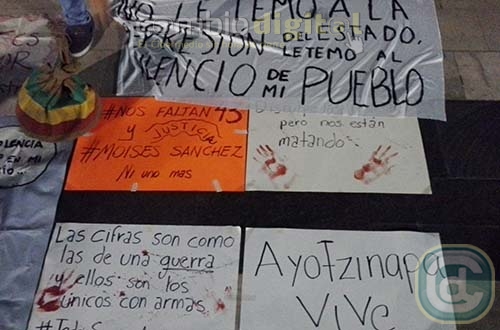 NO LE TEMO A LA
REPRESIÓN DEL ESTADO,
LE TEMO AL
SILENCIO DE
MI PUEBLO
#NOS FALTAN 43
y JUSTICIA
#MOISES SANCHEZ
Ni uno mas
pero nos están
matando
LENCIA
EN MI
Las cifras son como
las de una guerra
y ellos son los
únicos con armas
Ayotzinapa
Vive
digital